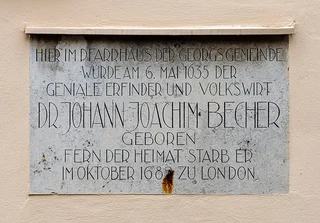 HIER IM PFARRHAUS DER GEORGSGEMEINDE
WURDE AM 6. MAI 1635 DER
GENIALE ERFINDER UND VOLKSWIRT
DR. JOHANN JOACHIM BECHER
GEBOREN
FERN DER HEIMAT STARB ER
IM OKTOBER 1682 ZU LONDON.